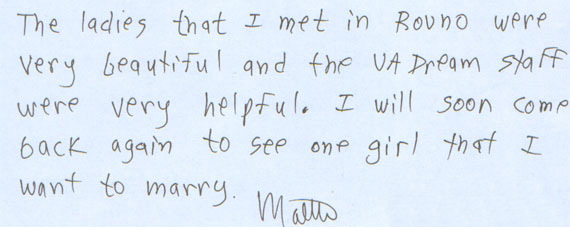 The ladies that I met in Rovno were
very beautiful and the UA Dream staff
were very helpful. I will soon come
back again to see one girl that I
want to marry.